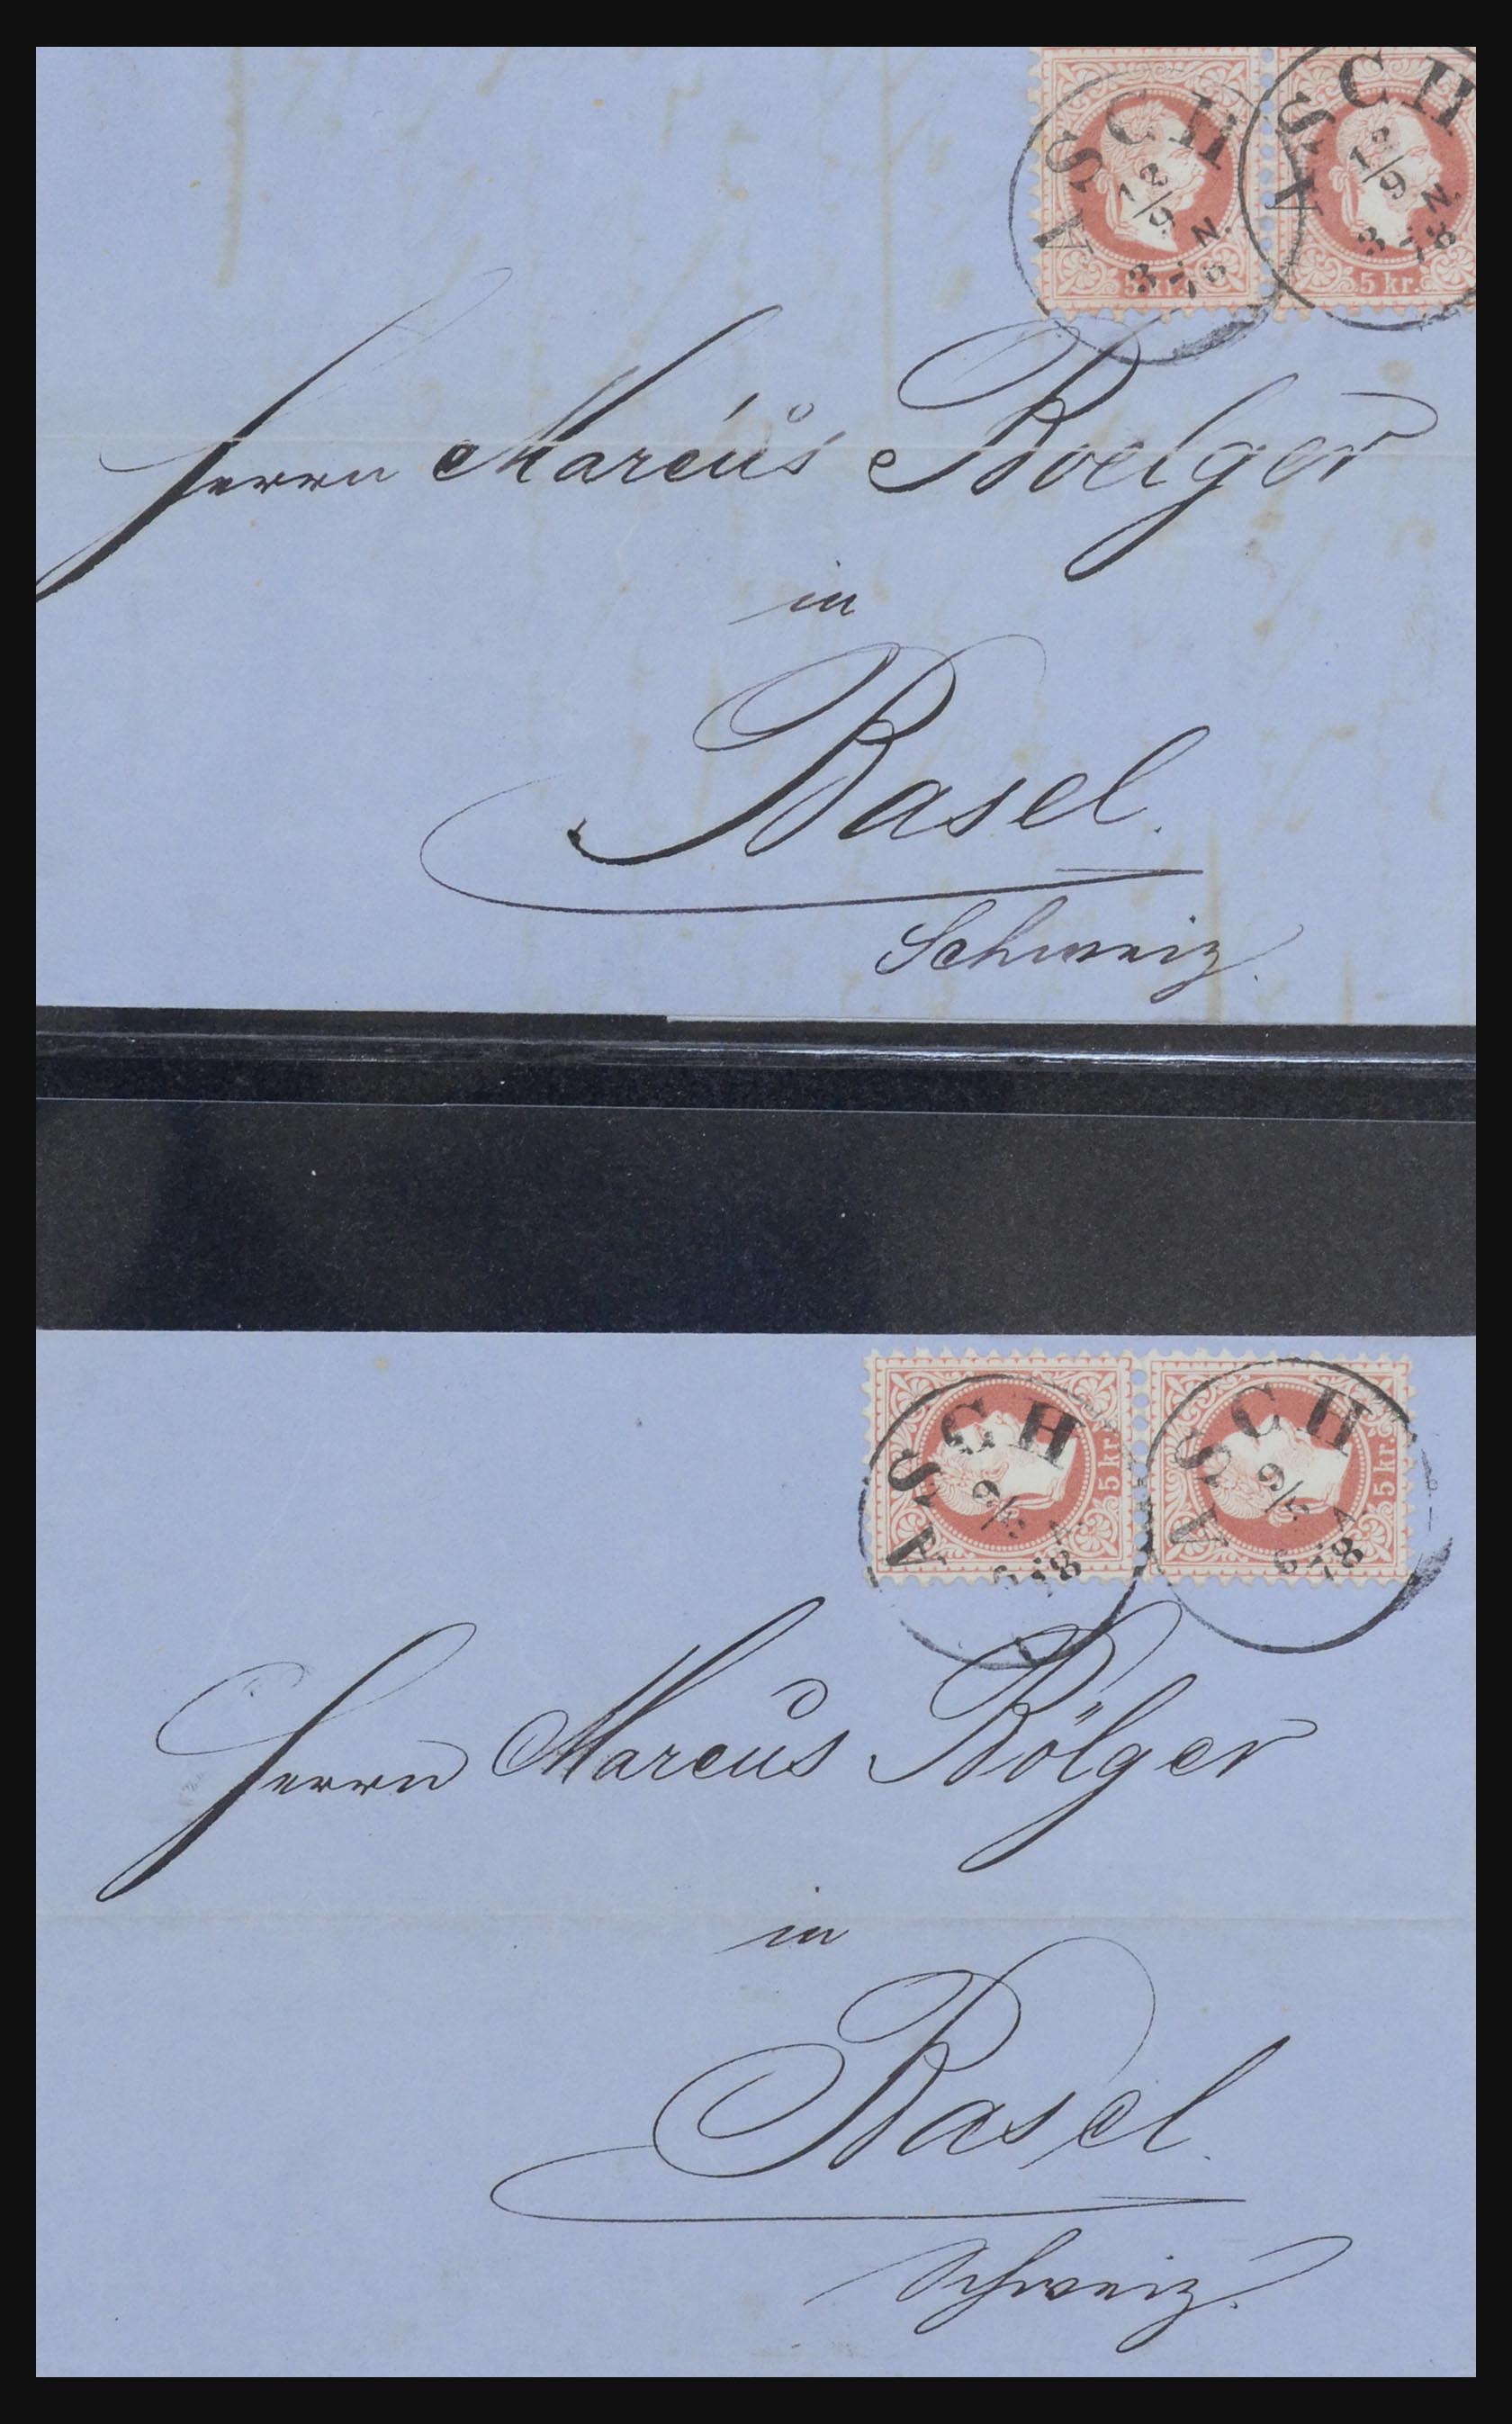 ASCH ASCH
12/9 12/9
3 N. 3 N.
78 78
5 kr. 5 kr.
Herrn Marcus Boelger
in
Basel.
Schweiz.
ASCH ASCH
9/5 9/5
6 78
78
5 kr. 5 kr.
Herrn Marcus Bölger
in
Basel.
Schweiz.